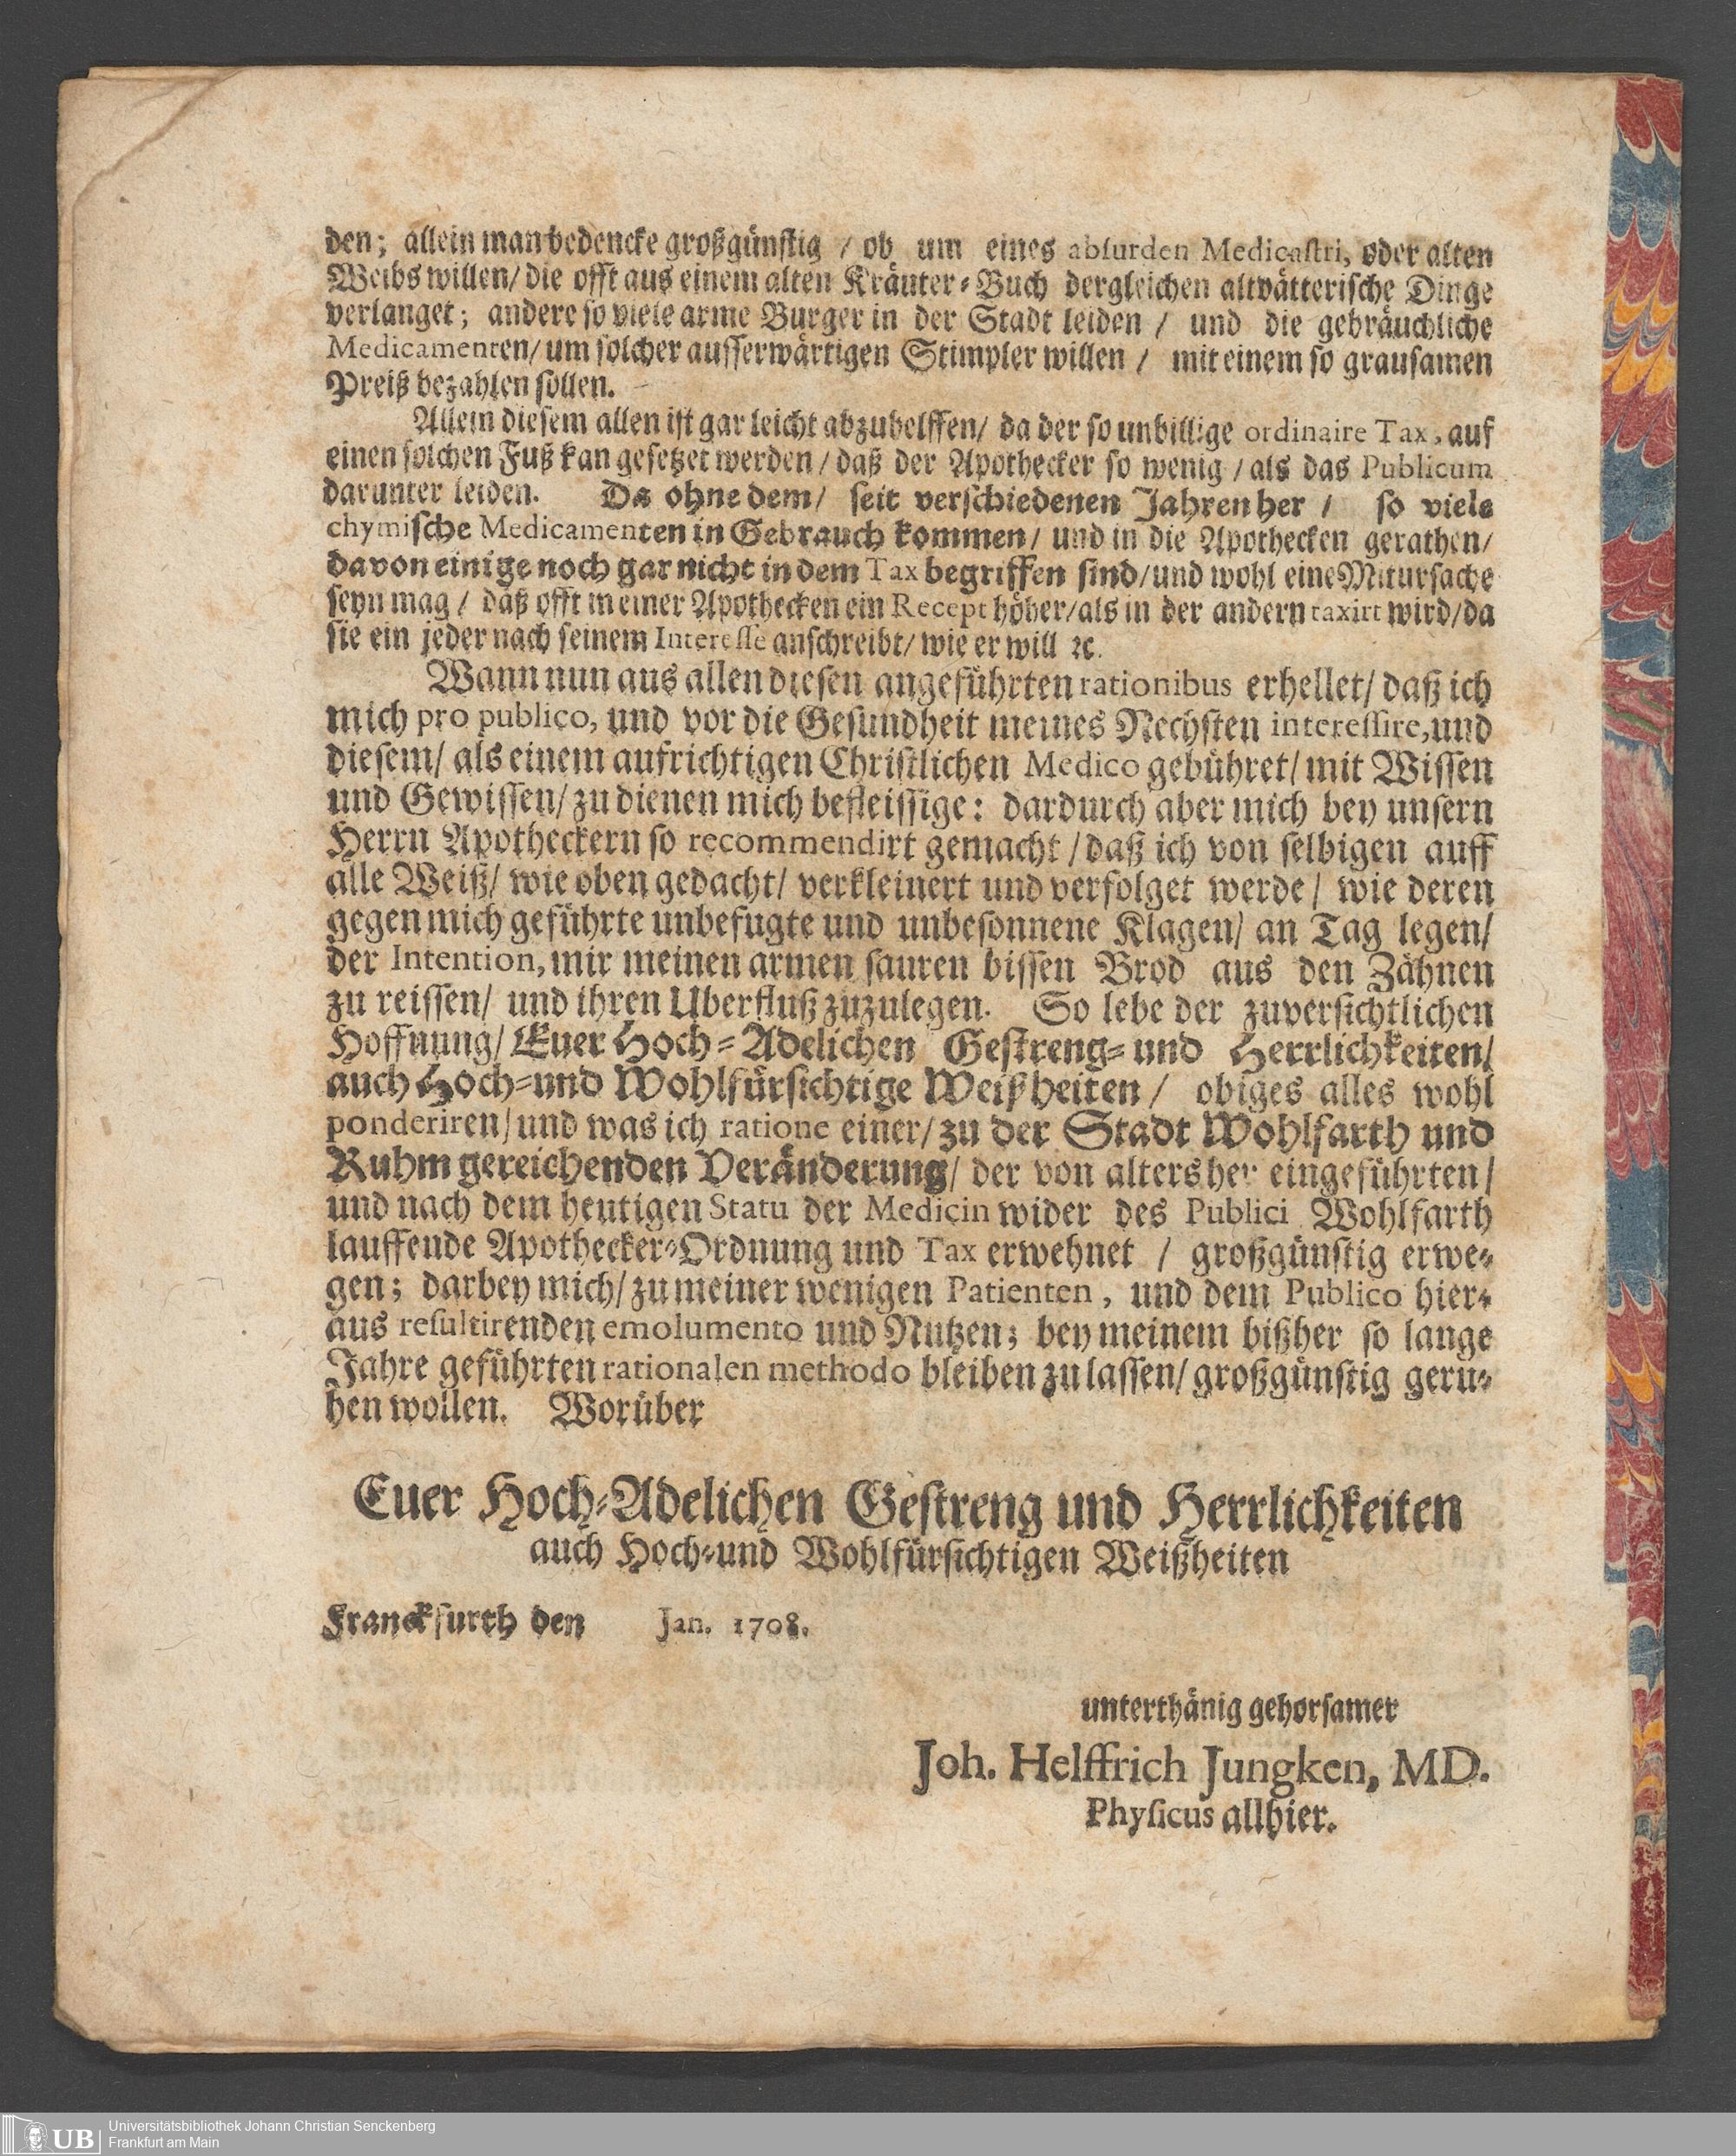 den; allein man bedencke großgünstig / ob um eines absurden Medicastri, oder alten
Weibs willen/ die offt aus einem alten Kräuter-Buch dergleichen altvätterische Dinge
verlanget; andere so viele arme Burger in der Stadt leiden / und die gebräuchliche
Medicamenten/ um solcher ausserwärtigen Stimpler willen / mit einem so grausamen
Preiß bezahlen sollen.
Allein diesem allen ist gar leicht abzuhelffen/ da der so unbillige ordinaire Tax, auf
einen solchen Fuß kan gesetzet werden / daß der Apothecker so wenig / als das Publicum
darunter leiden. Da ohne dem/ seit verschiedenen Jahren her / so viele
chymische Medicamenten in Gebrauch kommen/ und in die Apothecken gerathen/
davon einige noch gar nicht in dem Tax begriffen sind/und wohl eine Mitursache
seyn mag / daß offt in einer Apothecken ein Recept höher/als in der andern taxirt wird/da
sie ein jeder nach seinem Interesse anschreibt/ wie er will ꝛc.
Wann nun aus allen diesen angeführten rationibus erhellet/ daß ich
mich pro publico, und vor die Gesundheit meines Nechsten interessire, und
diesem/ als einem aufrichtigen Christlichen Medico gebühret/ mit Wissen
und Gewissen/ zu dienen mich befleissige: dardurch aber mich bey unsern
Herrn Apotheckern so recommendirt gemacht / daß ich von selbigen auff
alle Weiß/ wie oben gedacht/ verkleinert und verfolget werde / wie deren
gegen mich geführte unbefugte und unbesonnene Klagen/ an Tag legen/
der Intention, mir meinen armen sauren bissen Brod aus den Zähnen
zu reissen/ und ihren Uberfluß zuzulegen. So lebe der zuversichtlichen
Hoffnung/ Euer Hoch-Adelichen Gestreng- und Herrlichkeiten/
auch Hoch-und Wohlfürsichtige Weißheiten / obiges alles wohl
ponderiren/ und was ich ratione einer/ zu der Stadt Wohlfarth und
Ruhm gereichenden Veränderung/ der von alters her eingeführten/
und nach dem heutigen Statu der Medicin wider des Publici Wohlfarth
lauffende Apothecker-Ordnung und Tax erwehnet / großgünstig erwe-
gen; darbey mich/ zu meiner wenigen Patienten, und dem Publico hier-
aus resultirenden emolumento und Nutzen; bey meinem bißher so lange
Jahre geführten rationalen methodo bleiben zu lassen/ großgünstig geru-
hen wollen. Worüber
Euer Hoch-Adelichen Gestreng und Herrlichkeiten
auch Hoch-und Wohlfürsichtigen Weißheiten
Franckfurth den Jan. 1708.
unterthänig gehorsamer
Joh. Helffrich Jungken, MD.
Physicus allhier.
UB
Universitätsbibliothek Johann Christian Senckenberg
Frankfurt am Main